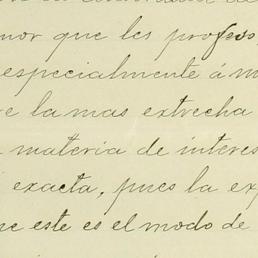 que les profeso
especialmente á m
la mas extrecha
materia de interes
exacta, pues la ex
este es el modo de